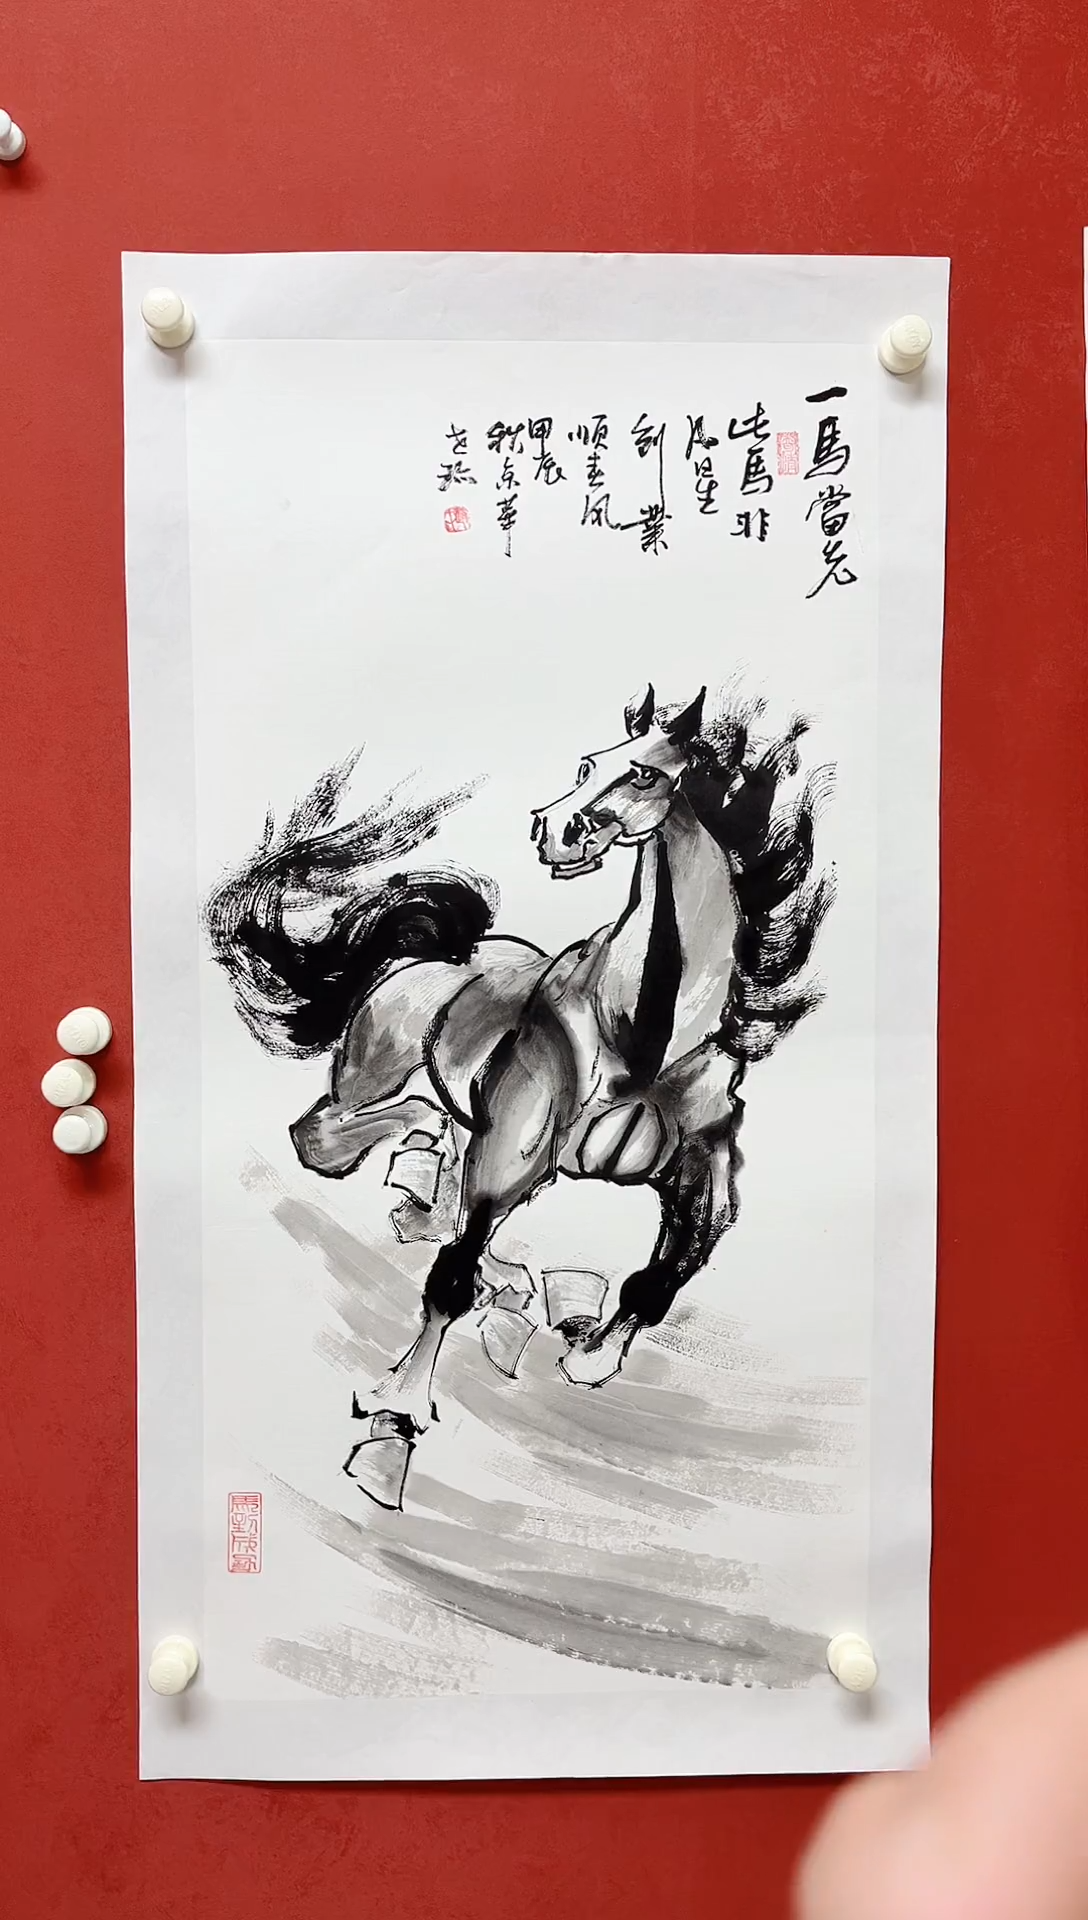 一馬當先
此馬非
凡星
創業
順春风
甲辰
秋京華
馬到成功